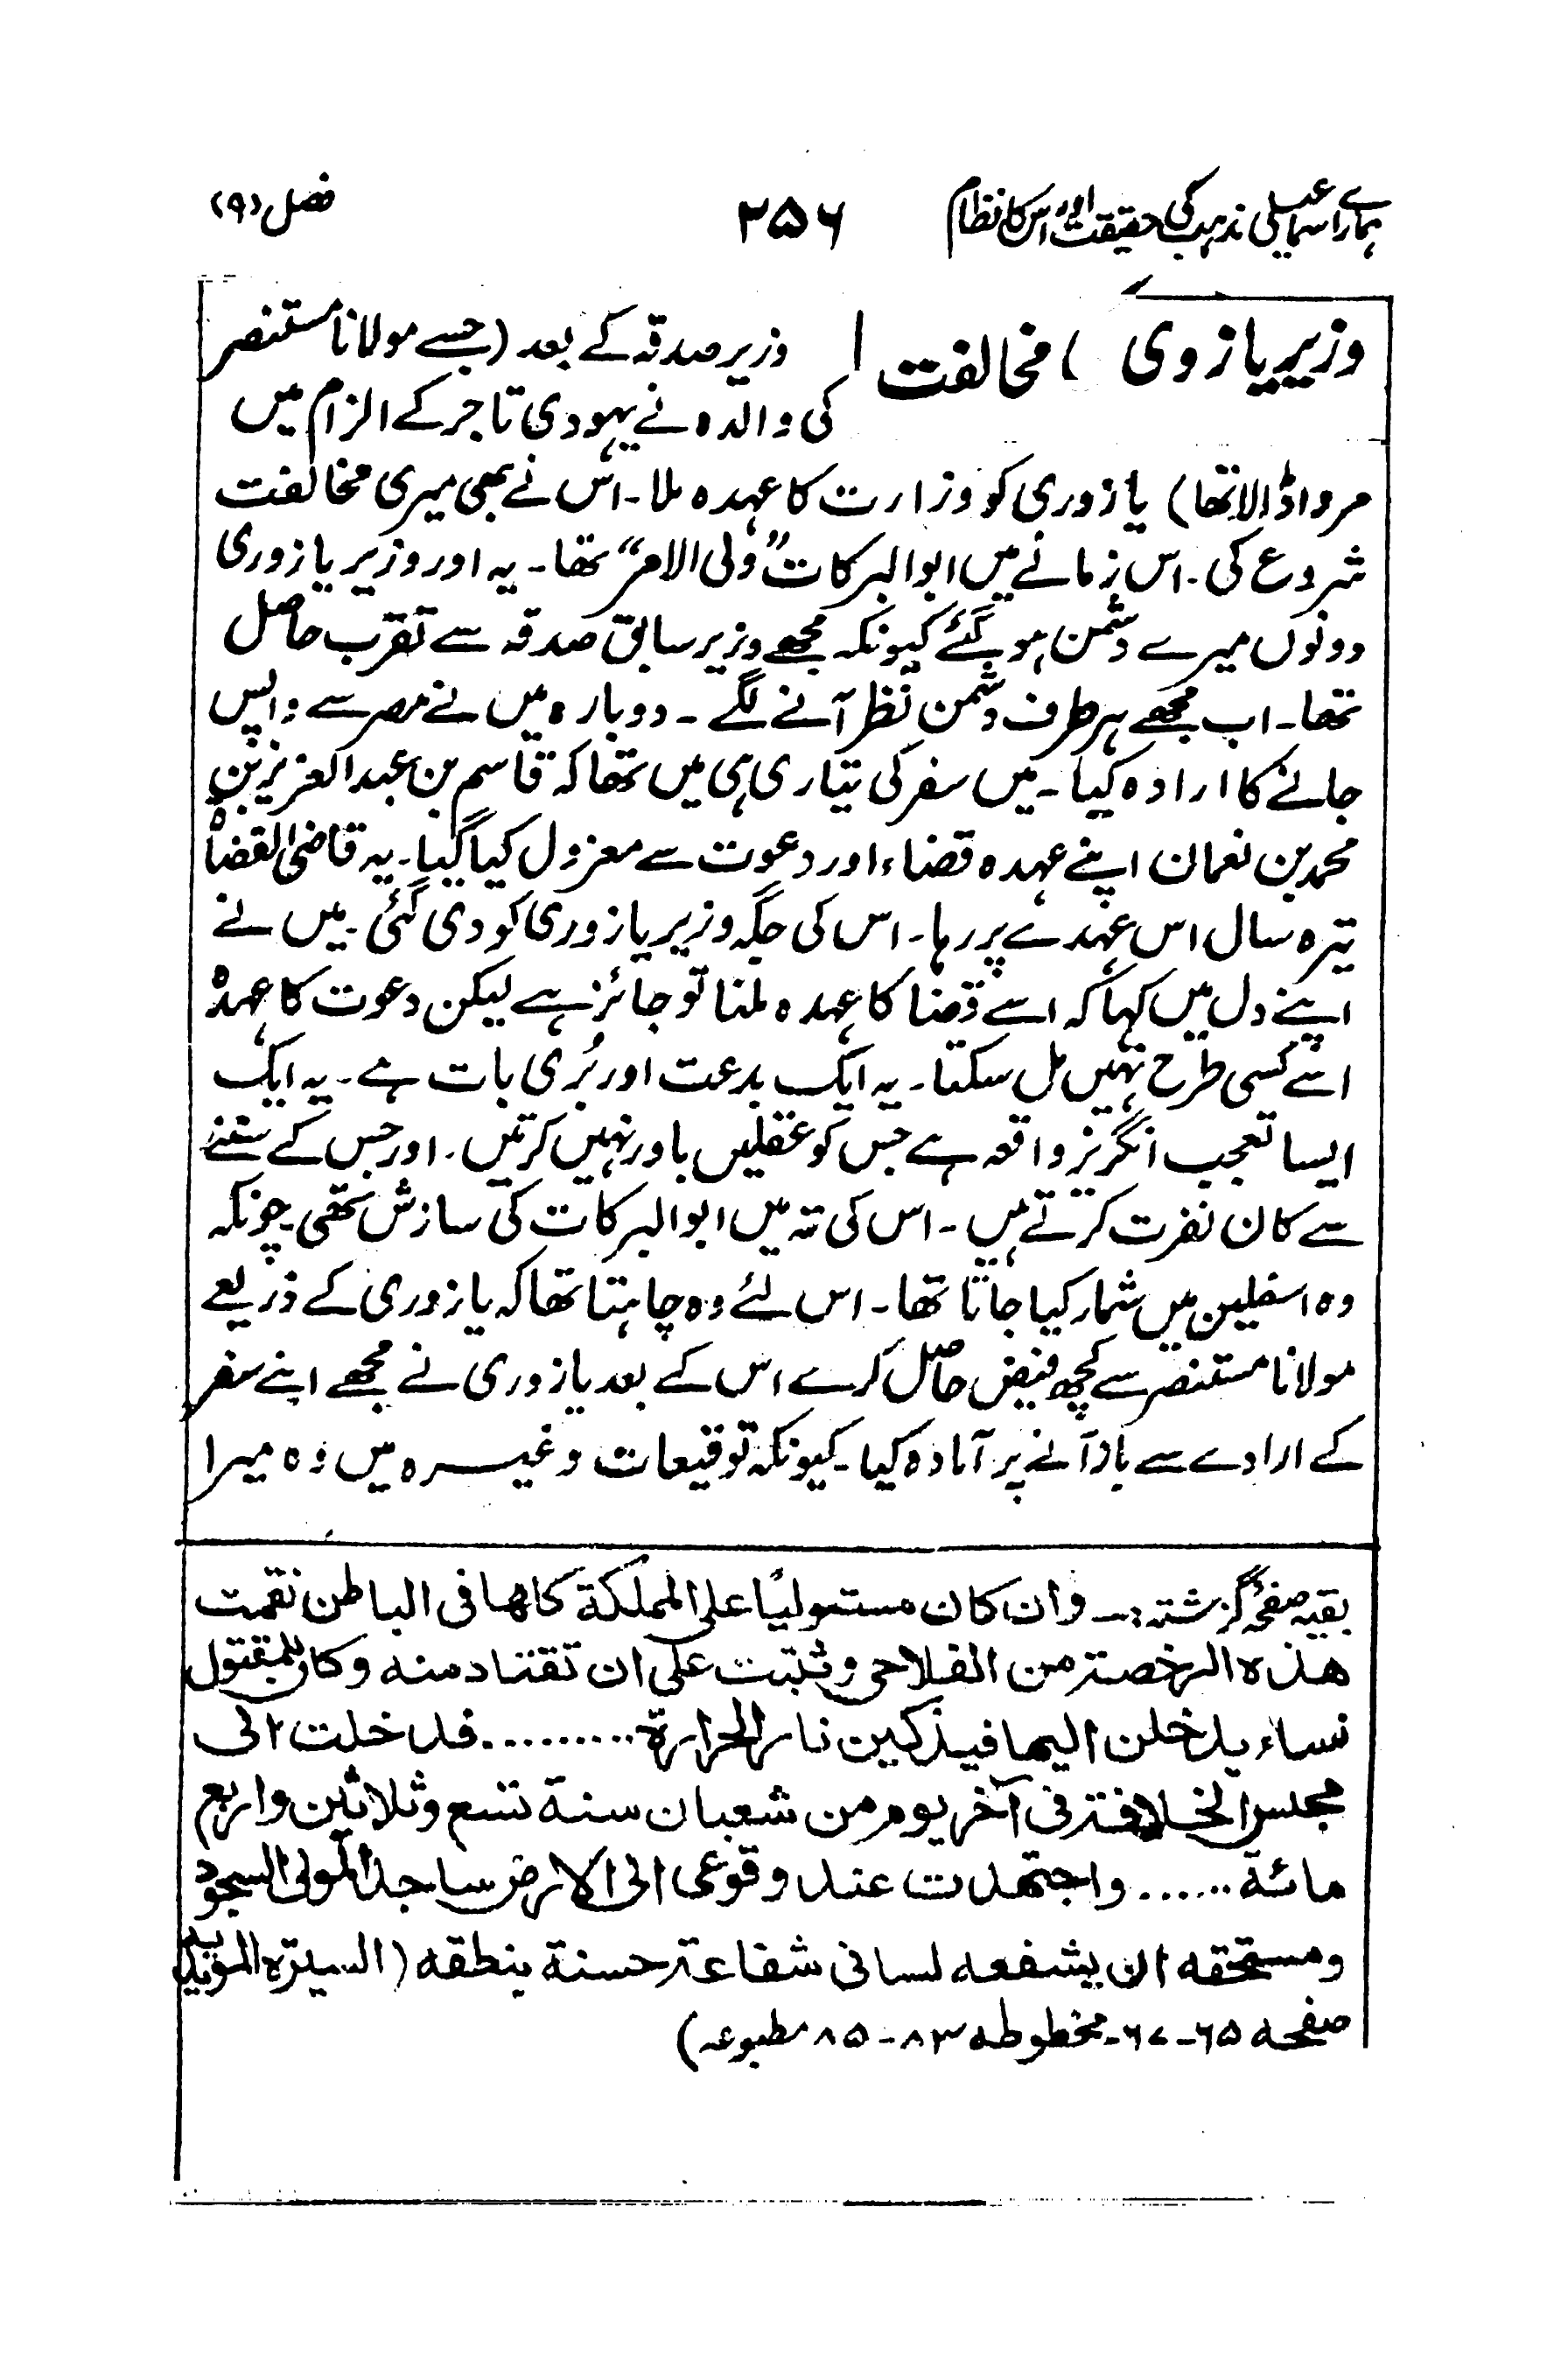 ہمارے اسماعیلی مذہب کی حقیقت اور اس کا نظام ۲۵۶ فصل (۹)
وزیر یازوری کی مخالفت | وزیر صدقہ کے بعد (جسے مولانا مستنصر
کی والدہ نے یہودی تاجر کے الزام میں
مرواڈالا تھا) یازوری کو وزارت کا عہدہ ملا۔ اس نے بھی میری مخالفت
شروع کی۔ اس زمانے میں ابوالبرکات "ولی الامر" تھا۔ یہ اور وزیر یازوری
دونوں میرے دشمن ہو گئے کیونکہ مجھے وزیر سابق صدقہ سے تقرب حاصل
تھا۔ اب مجھے ہر طرف دشمن نظر آنے لگے ۔ دوبارہ میں نے مصر سے واپس
جانے کا ارادہ کیا۔ میں سفر کی تیاری ہی میں تھا کہ قاسم بن عبدالعزیز بن
محمد بن نعمان اپنے عہدہ قضاء اور دعوت سے معزول کیا گیا۔ یہ قاضی القضاۃ
تیرہ سال اس عہدے پر رہا۔ اس کی جگہ وزیر یازوری کو دی گئی۔ میں نے
اپنے دل میں کہا کہ اسے قضا کا عہدہ ملنا تو جائز ہے لیکن دعوت کا عہدہ
اسے کسی طرح نہیں مل سکتا۔ یہ ایک بدعت اور بُری بات ہے۔ یہ ایک
ایسا تعجب انگریز واقعہ ہے جس کو عقلیں باور نہیں کرتیں۔ اور جس کے سننے
سے کان نفرت کرتے ہیں۔ اس کی تہ میں ابوالبرکات کی سازش تھی چونکہ
وہ اسفلین میں شمار کیا جاتا تھا۔ اس لئے وہ چاہتا تھا کہ یازوری کے ذریعے
مولانا مستنصر سے کچھ فیض حاصل کرے اس کے بعد یازوری نے مجھے اپنے سفر
کے ارادے سے باز آنے پر آمادہ کیا۔ کیونکہ توقیعات وغیرہ میں وہ میرا
بقیہ صفحۂ گزشتہ:۔ وان کان مستولیًا علی المملکة کلها فی الباطن نقمت
هذه الرخصة من الفلاحی وثبتت علی ان تقتاد منه وکان للمقتول
نساء یدخلن الیها فیذکین نار الحرارة.......... فدخلت الی
مجلس الخلافة فی آخر یوم من شعبان سنة تسع وثلاثین واربع
مائة ...... واجتهدت عند وقوعی الی الارض ساجد المولی السجود
ومستحقه ان یشفعه لسانی شفاعة حسنة بنطقه (السیرة المویدیه
صفحه ۶۵-۶۷ مخطوطه ۸۳-۸۵ مطبوعہ)